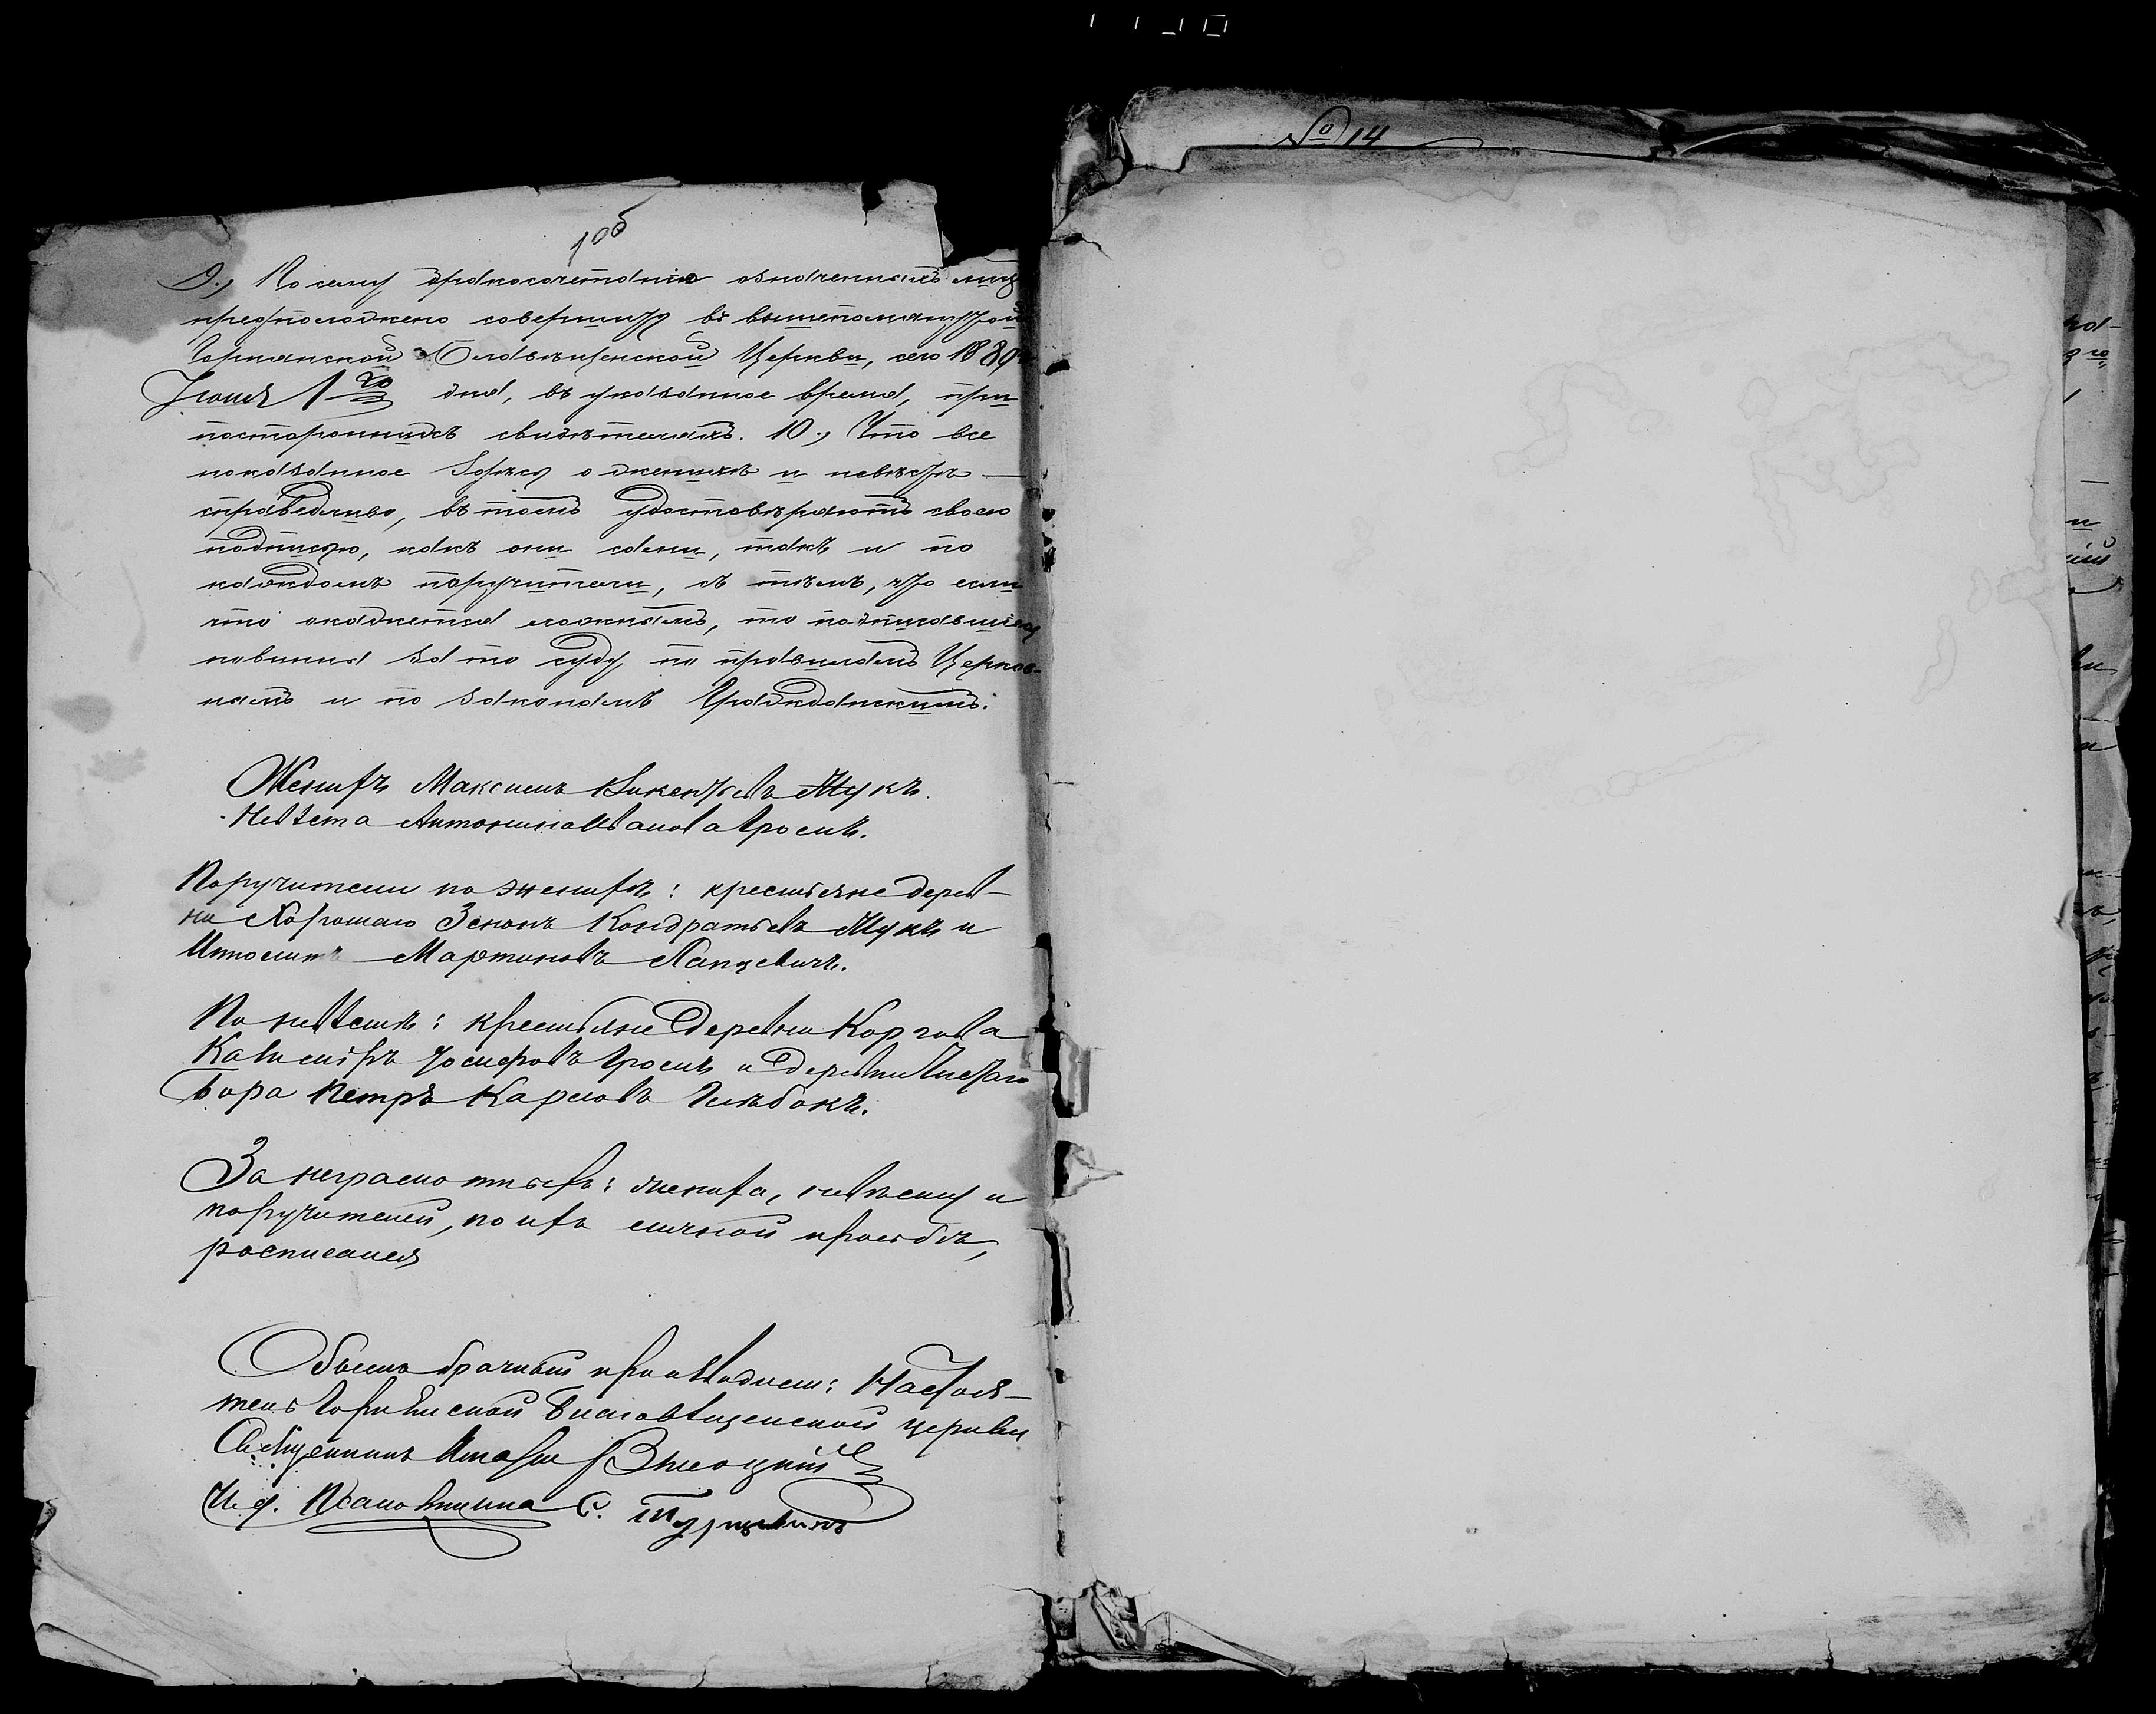 106
9., По сему бракосочетание означенныхъ лицъ
предположено совершить въ вышепомянутой
Благовѣщенской Церкви, сего 188
Іюня 1го дня, въ указанное время, при
постороннихъ свидѣтеляхъ. 10., Что все
показанное здѣсь о женихѣ и невѣстѣ —
справедливо, въ томъ удостовѣряютъ своею
подписью, какъ они сами, такъ и по
каждомъ поручители, съ тѣмъ, что если
что окажется ложнымъ, то подписавшіеся
повинны за то суду по правиламъ Церков-
нымъ и по законамъ Гражданскимъ.
Женихъ Максимъ Викентьевъ Жукъ.
Невѣста Антонина Иванова
Поручители по женихѣ: крестьяне дерев-
ни Хорошаго Зенонъ Кондратьевъ Жукъ и
Мартиновъ Ланцевичъ.
По невѣстѣ: крестьяне деревни
Казиміръ Іосифовъ и деревни Чистаго
Бора Петръ Карловъ
За неграмотныхъ: жениха, невѣсту и
поручителей, по ихъ личной просьбѣ,
росписался
Обыскъ брачный производилъ: Настоя-
тель Благовѣщенской церкви
Священникъ
И. д. Псаломщика С.
№ 14